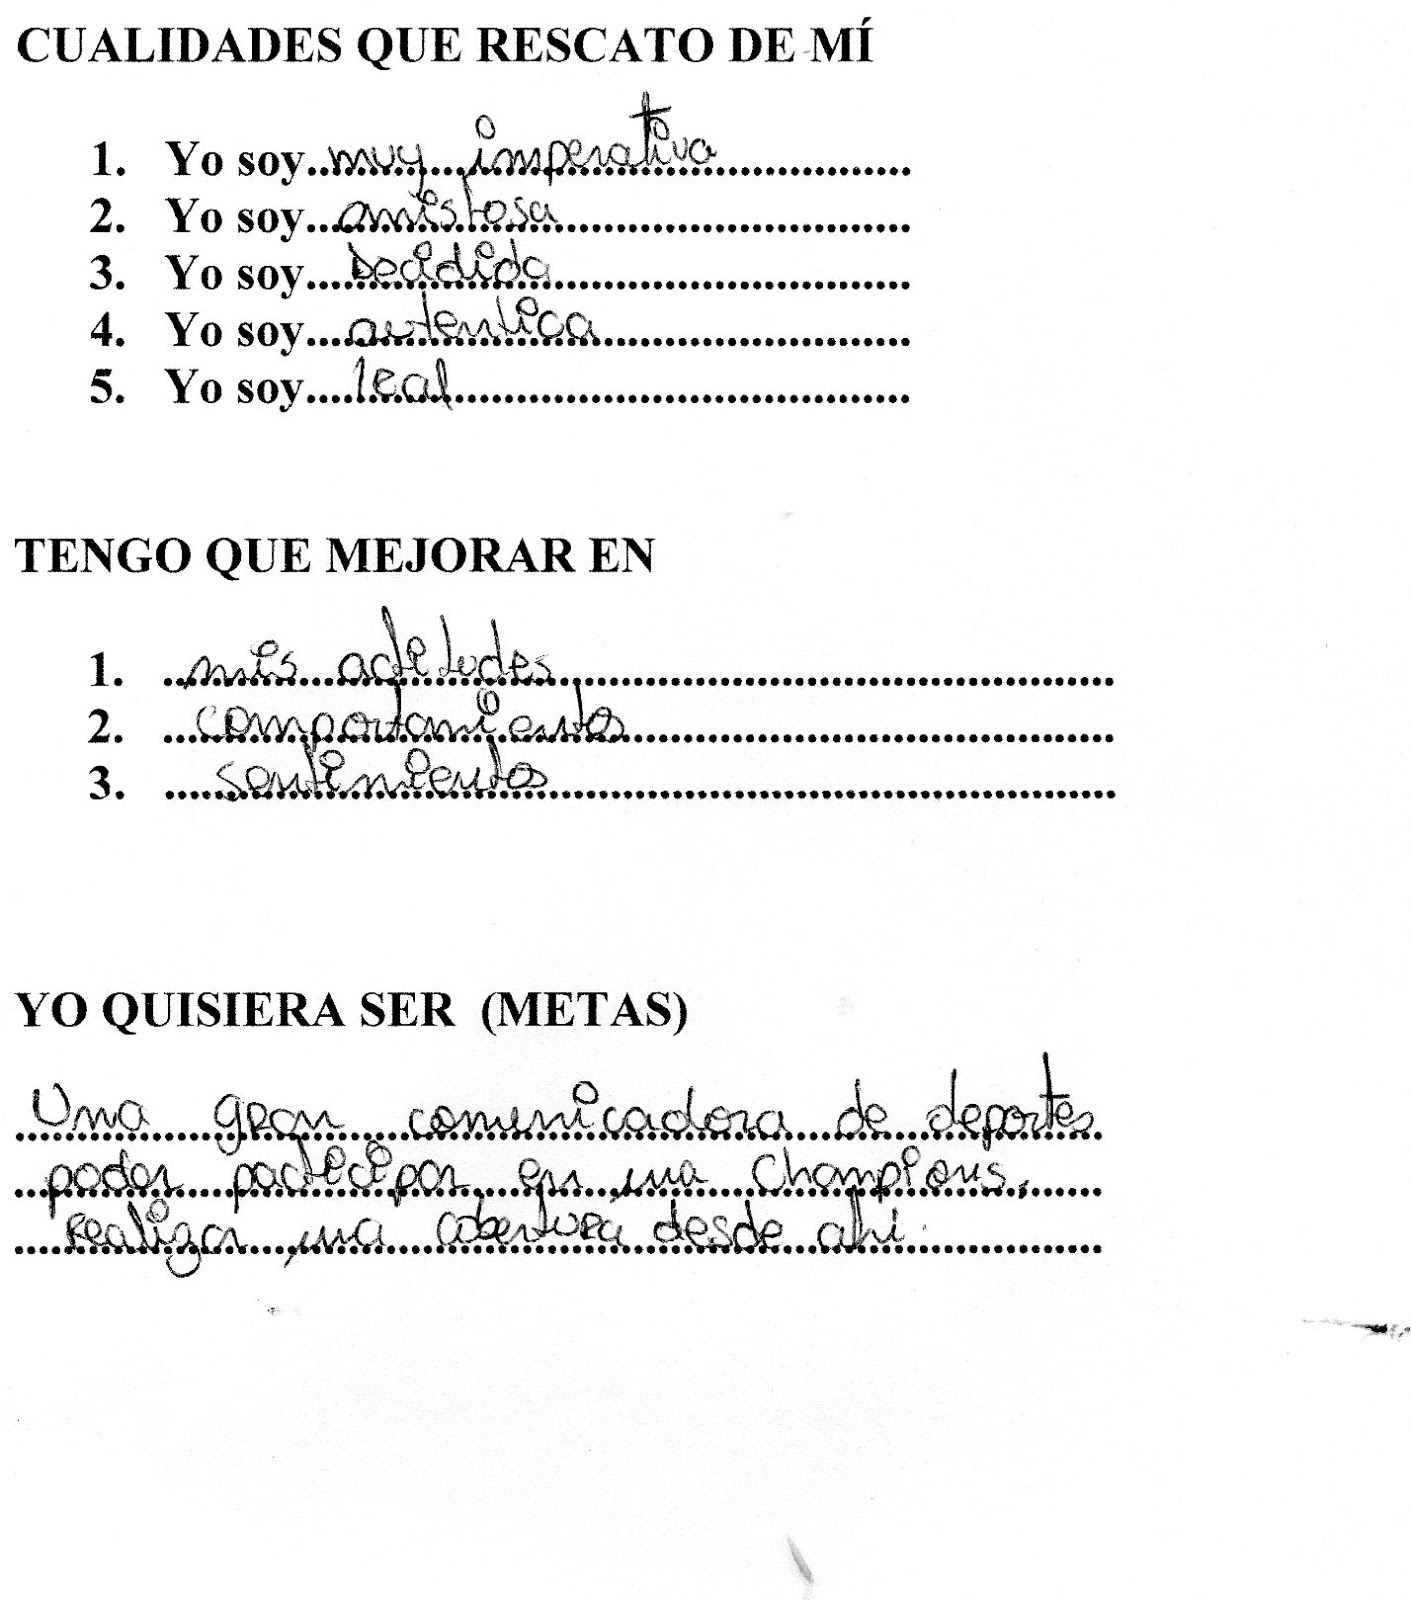 CUALIDADES QUE RESCATO DE MÍ
1. Yo soy muy imperativa
2. Yo soy amistosa
3. Yo soy Decidida
4. Yo soy autentica
5. Yo soy leal
TENGO QUE MEJORAR EN
1. mis actitudes
2. comportamientos
3. sentimientos
YO QUISIERA SER (METAS)
Una gran comunicadora de deportes
poder participar en una Champions,
realizar una cobertura desde ahi.